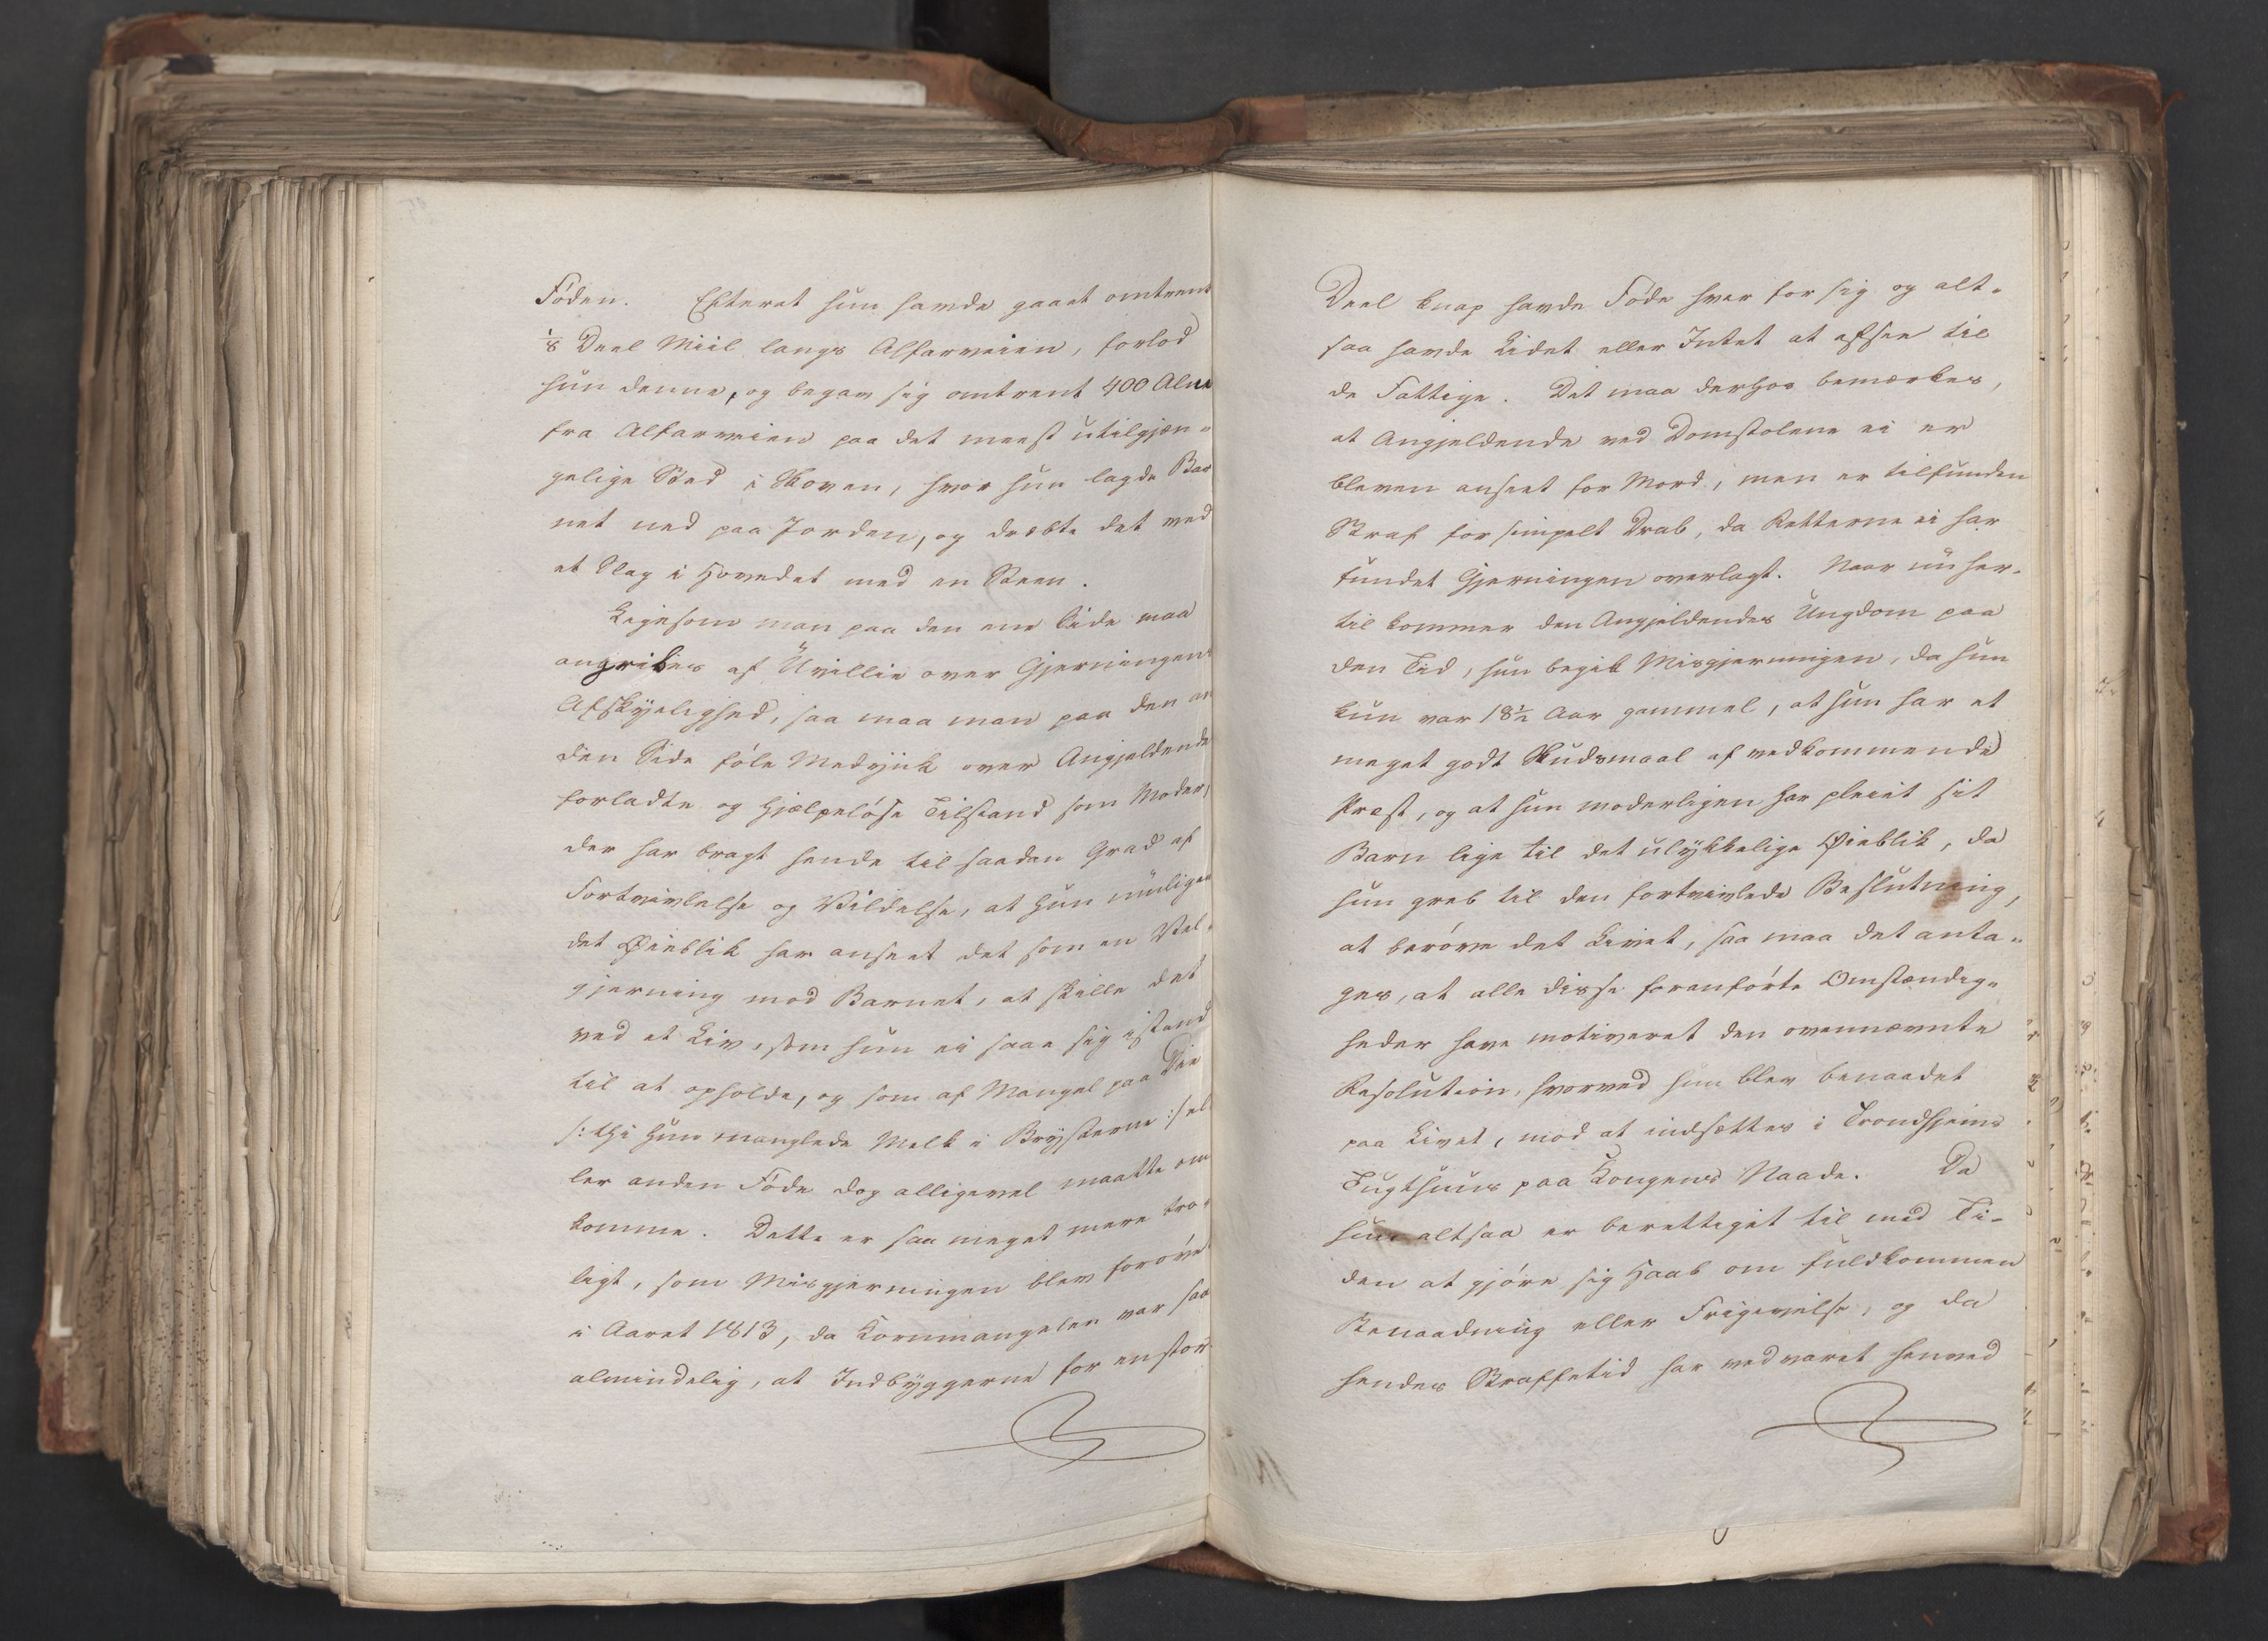 Føden. Efterat hun havde gaaet omtrent
1/8 Deel Miil langs Alfarveien, forlod
hun denne, og begav sig omtrent 400 Alne
fra Alfarveien paa det meest utilgjæn-
gelige Sted i Skoven, hvor hun lagde Bar
net ned paa Jorden, og dræbte det med
et Slag i Hovedet med en Steen.
Ligesom man paa den ene Side maa
angribes af Uvillie over Gjerningens
Afskyelighed, saa maa man paa den an
den Side føle Medynk over Angjeldende
forladte og hjælpeløse Tilstand som Moder,
der har bragt hende til saadan Grad af
Fortvivlelse og Vildelse, at hun muligen
det Øieblik har anseet det som en Vel-
gjerning mod Barnet, at skille det
ved et Liv, som hun ei saae sig istand
til at opholde, og som af Mangel paa Die
/: thi hun manglede Melk i Brysterne :/ el
ler anden Føde dog alligevel maatte om
komme. Dette er saa meget mere tro-
ligt, som Misgjerningen blev forøvet
i Aaret 1813, da Kornmangelen var saa
almindelig, at Indbyggerne for en stor
Deel knap havde Føde hver for sig og alt-
saa havde Lidet eller Intet at afsee til
de Fattige. Det maa derhos bemærkes,
at Angjeldende ved Domstolene ei er
bleven anseet for Mord, men er tilfunden
Straf for simpelt Drab, da Retterne ei har
fundet Gjerningen overlagt. Naar nu her-
til kommer den Angjeldendes Ungdom paa
den Tid, hun begik Misgjerningen, da hun
kun var 18½ Aar gammel, at hun har et
meget godt Skudsmaal af vedkommende
Præst, og at hun moderligen har pleiet sit
Barn lige til det ulykkelige Øieblik, da
hun greb til den fortvivlede Beslutning,
at berøve det Livet, saa maa det anta-
ges, at alle disse foranførte Omstændig-
heder have motiveret den ovennævnte
Resolution, hvorved hun blev benaadet
paa Livet, mod at indsættes i Trondhjems
Tugthuus paa Kongens Naade. Da
hun altsaa er berettiget til med Ti-
den at gjøre sig Haab om fuldkommen
Benaadning eller Frigivelse, og da
hendes Straffetid har vedvaret henved